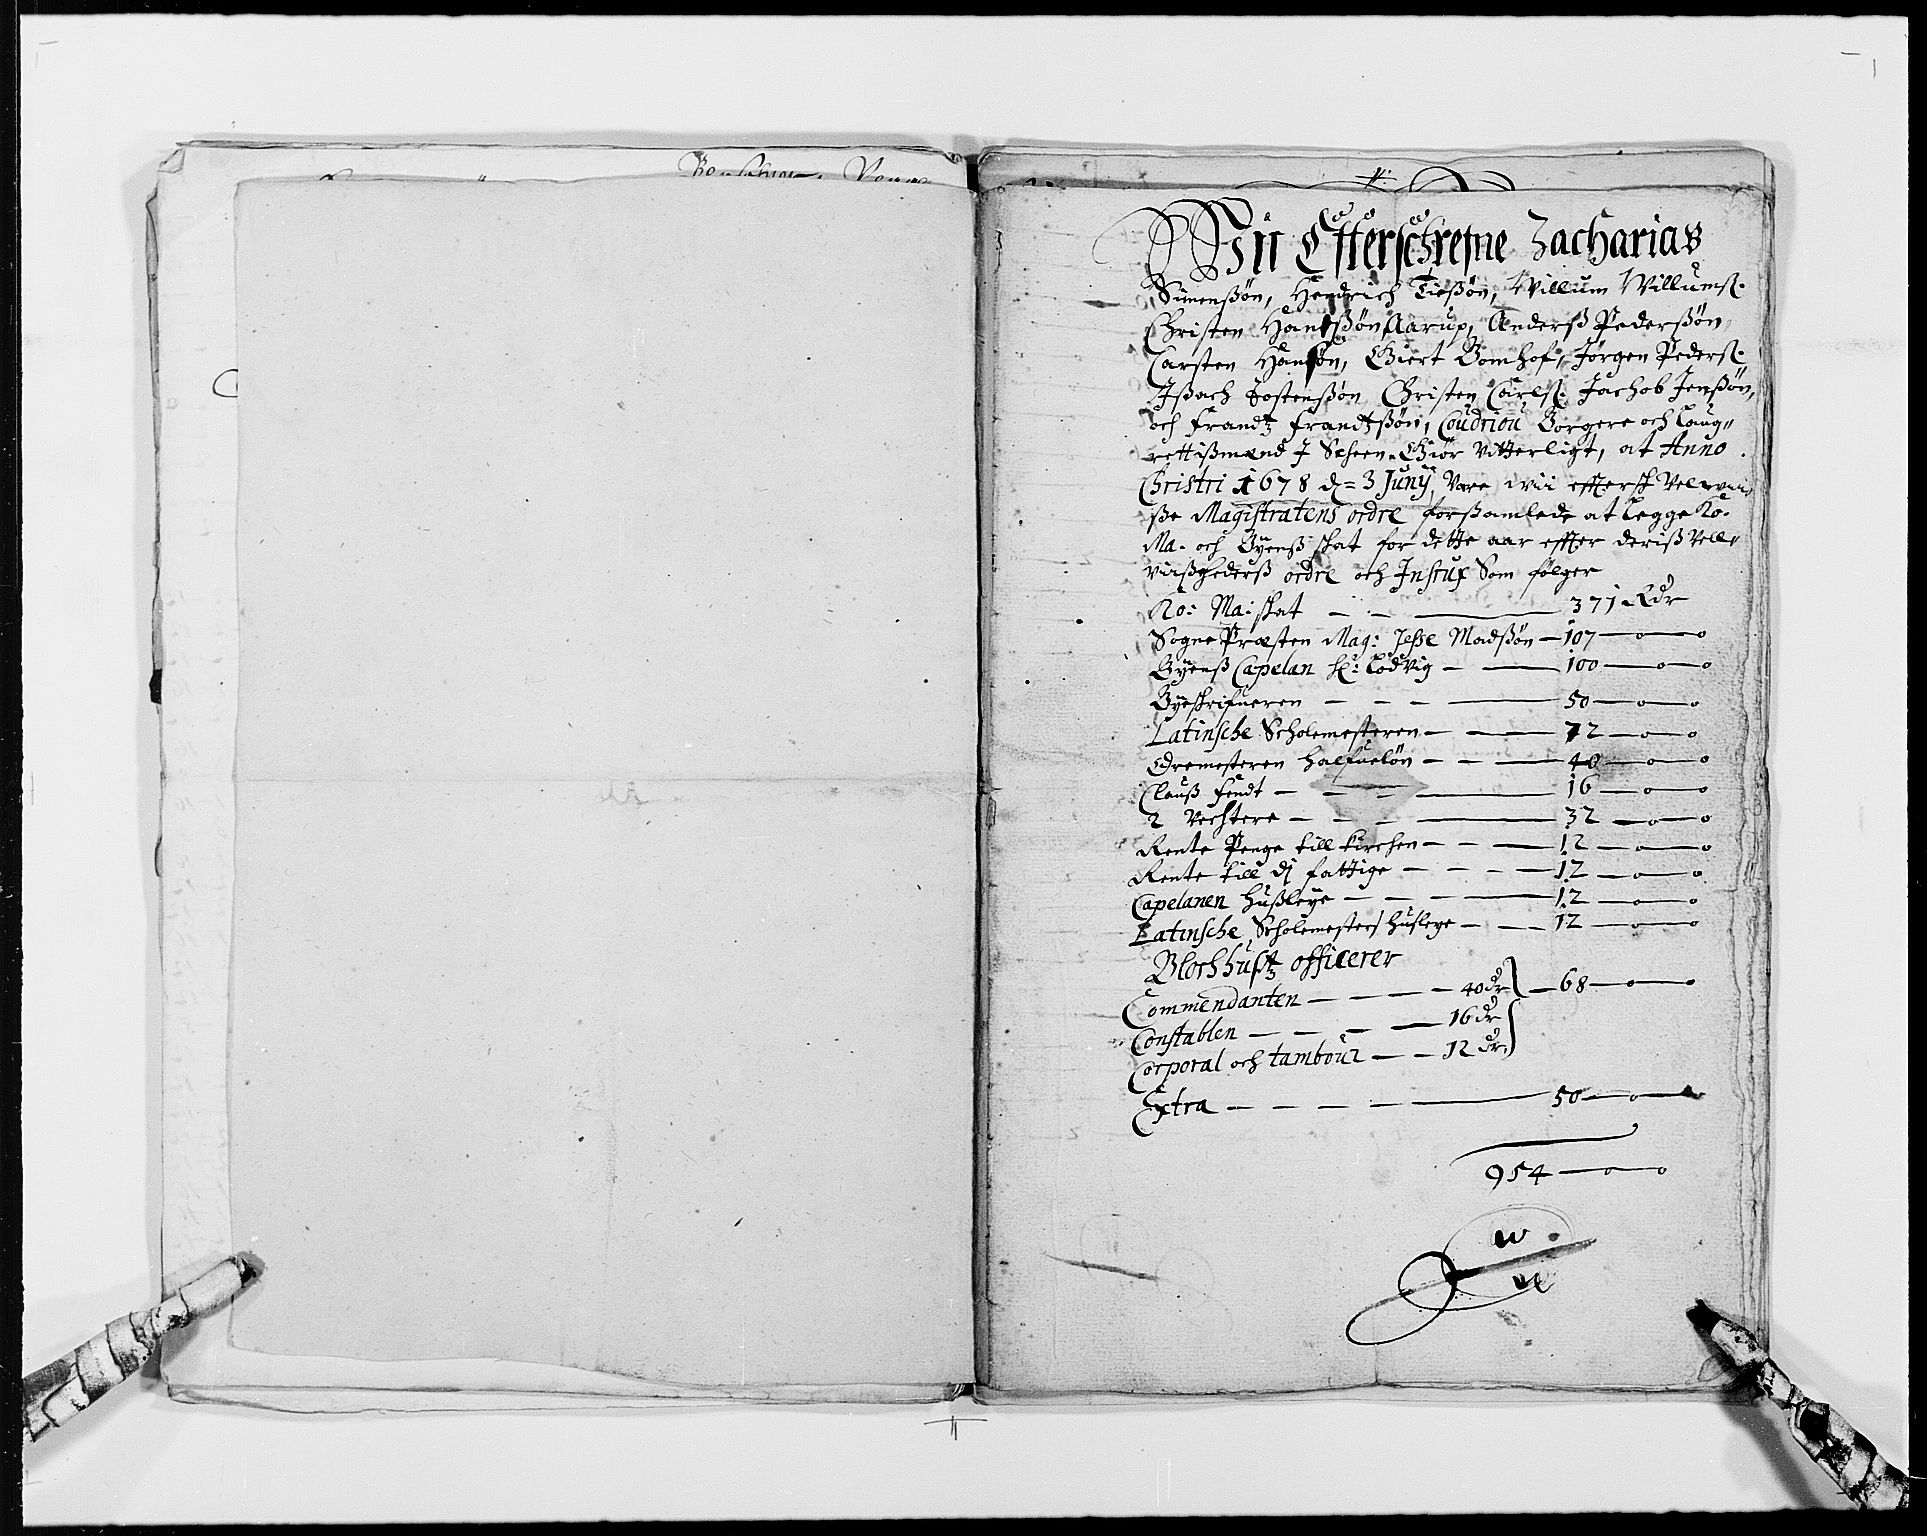 Wii Efterschrefne Zacharias
Simenßøn, Hendrich Tießøn, Willum Willumß:
Christen Hanßøn Aarup, Anderß Pederßøn,
Carsten Hanßøn, Giert Bomhof, Jørgen Pederß:
Jßach Jostenßøn Christen Carlß: Jachob Jenßøn,
och Frandtz Frandtzßøn, Coudriou Borgere och Laug"
rettißmend J Scheen, Giør Vitterligt, at Anno
Christri 1678 d= 3 Junÿ, Vare wii efftersch Velwii
ße Magistratens ordre forßamlede at Legge Ko.
Ma. och Byenß skat for dette aar effter deriß Vell"
viißheders ordre och Instrux Som følger
Ko: Ma: skat — — — 371 Rdr
Sogne Præsten Mag: Jesse Madßøn — 107 — o — o
Byenß Capelan H: Lodvig — — 100 — o — o
Byeskrifueren — — — — 50 — o — o
Latinsche Scholemesteren — — — 72 — o — o
Ormesteren halfueløn — — — 40 — o — o
Clauß Fendt — — — — 16 — o — o
2 Vechtere — — — — 32 — o — o
Rente Penge till kirchen — — — 12 — o — o
Rente till dj fattige — — — — 12 — o — o
Capelanen hußleye — — — — 12 — o — o
Latinsche Scholemesters husleye — — 12 — o — o
Blochhußtz officerer
Commendanten — — — — 40 dr } — 68 — o — o
Constablen — — — — 16 dr
Corporal och tambour — — 12 dr
Extra — — — — — 50 — o — o
954 — o — o